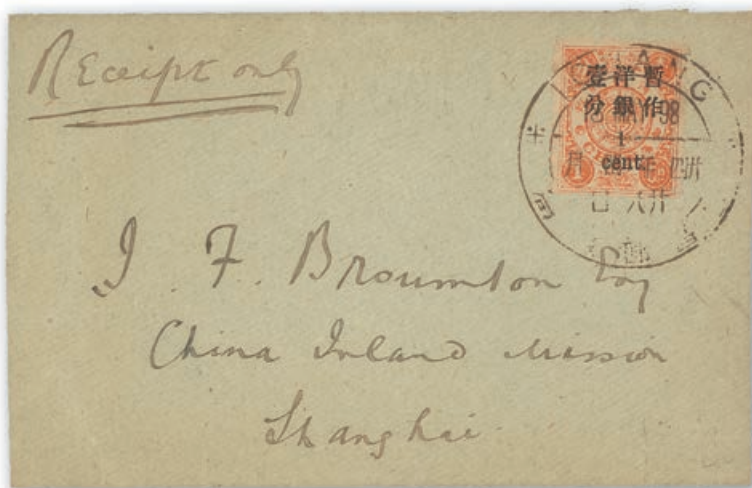 Receipt only
ICHANG
MAY 98
暫作
洋銀
壹分
1
cent.
J. F. Broumton Esq
China Inland Mission
Shanghai.